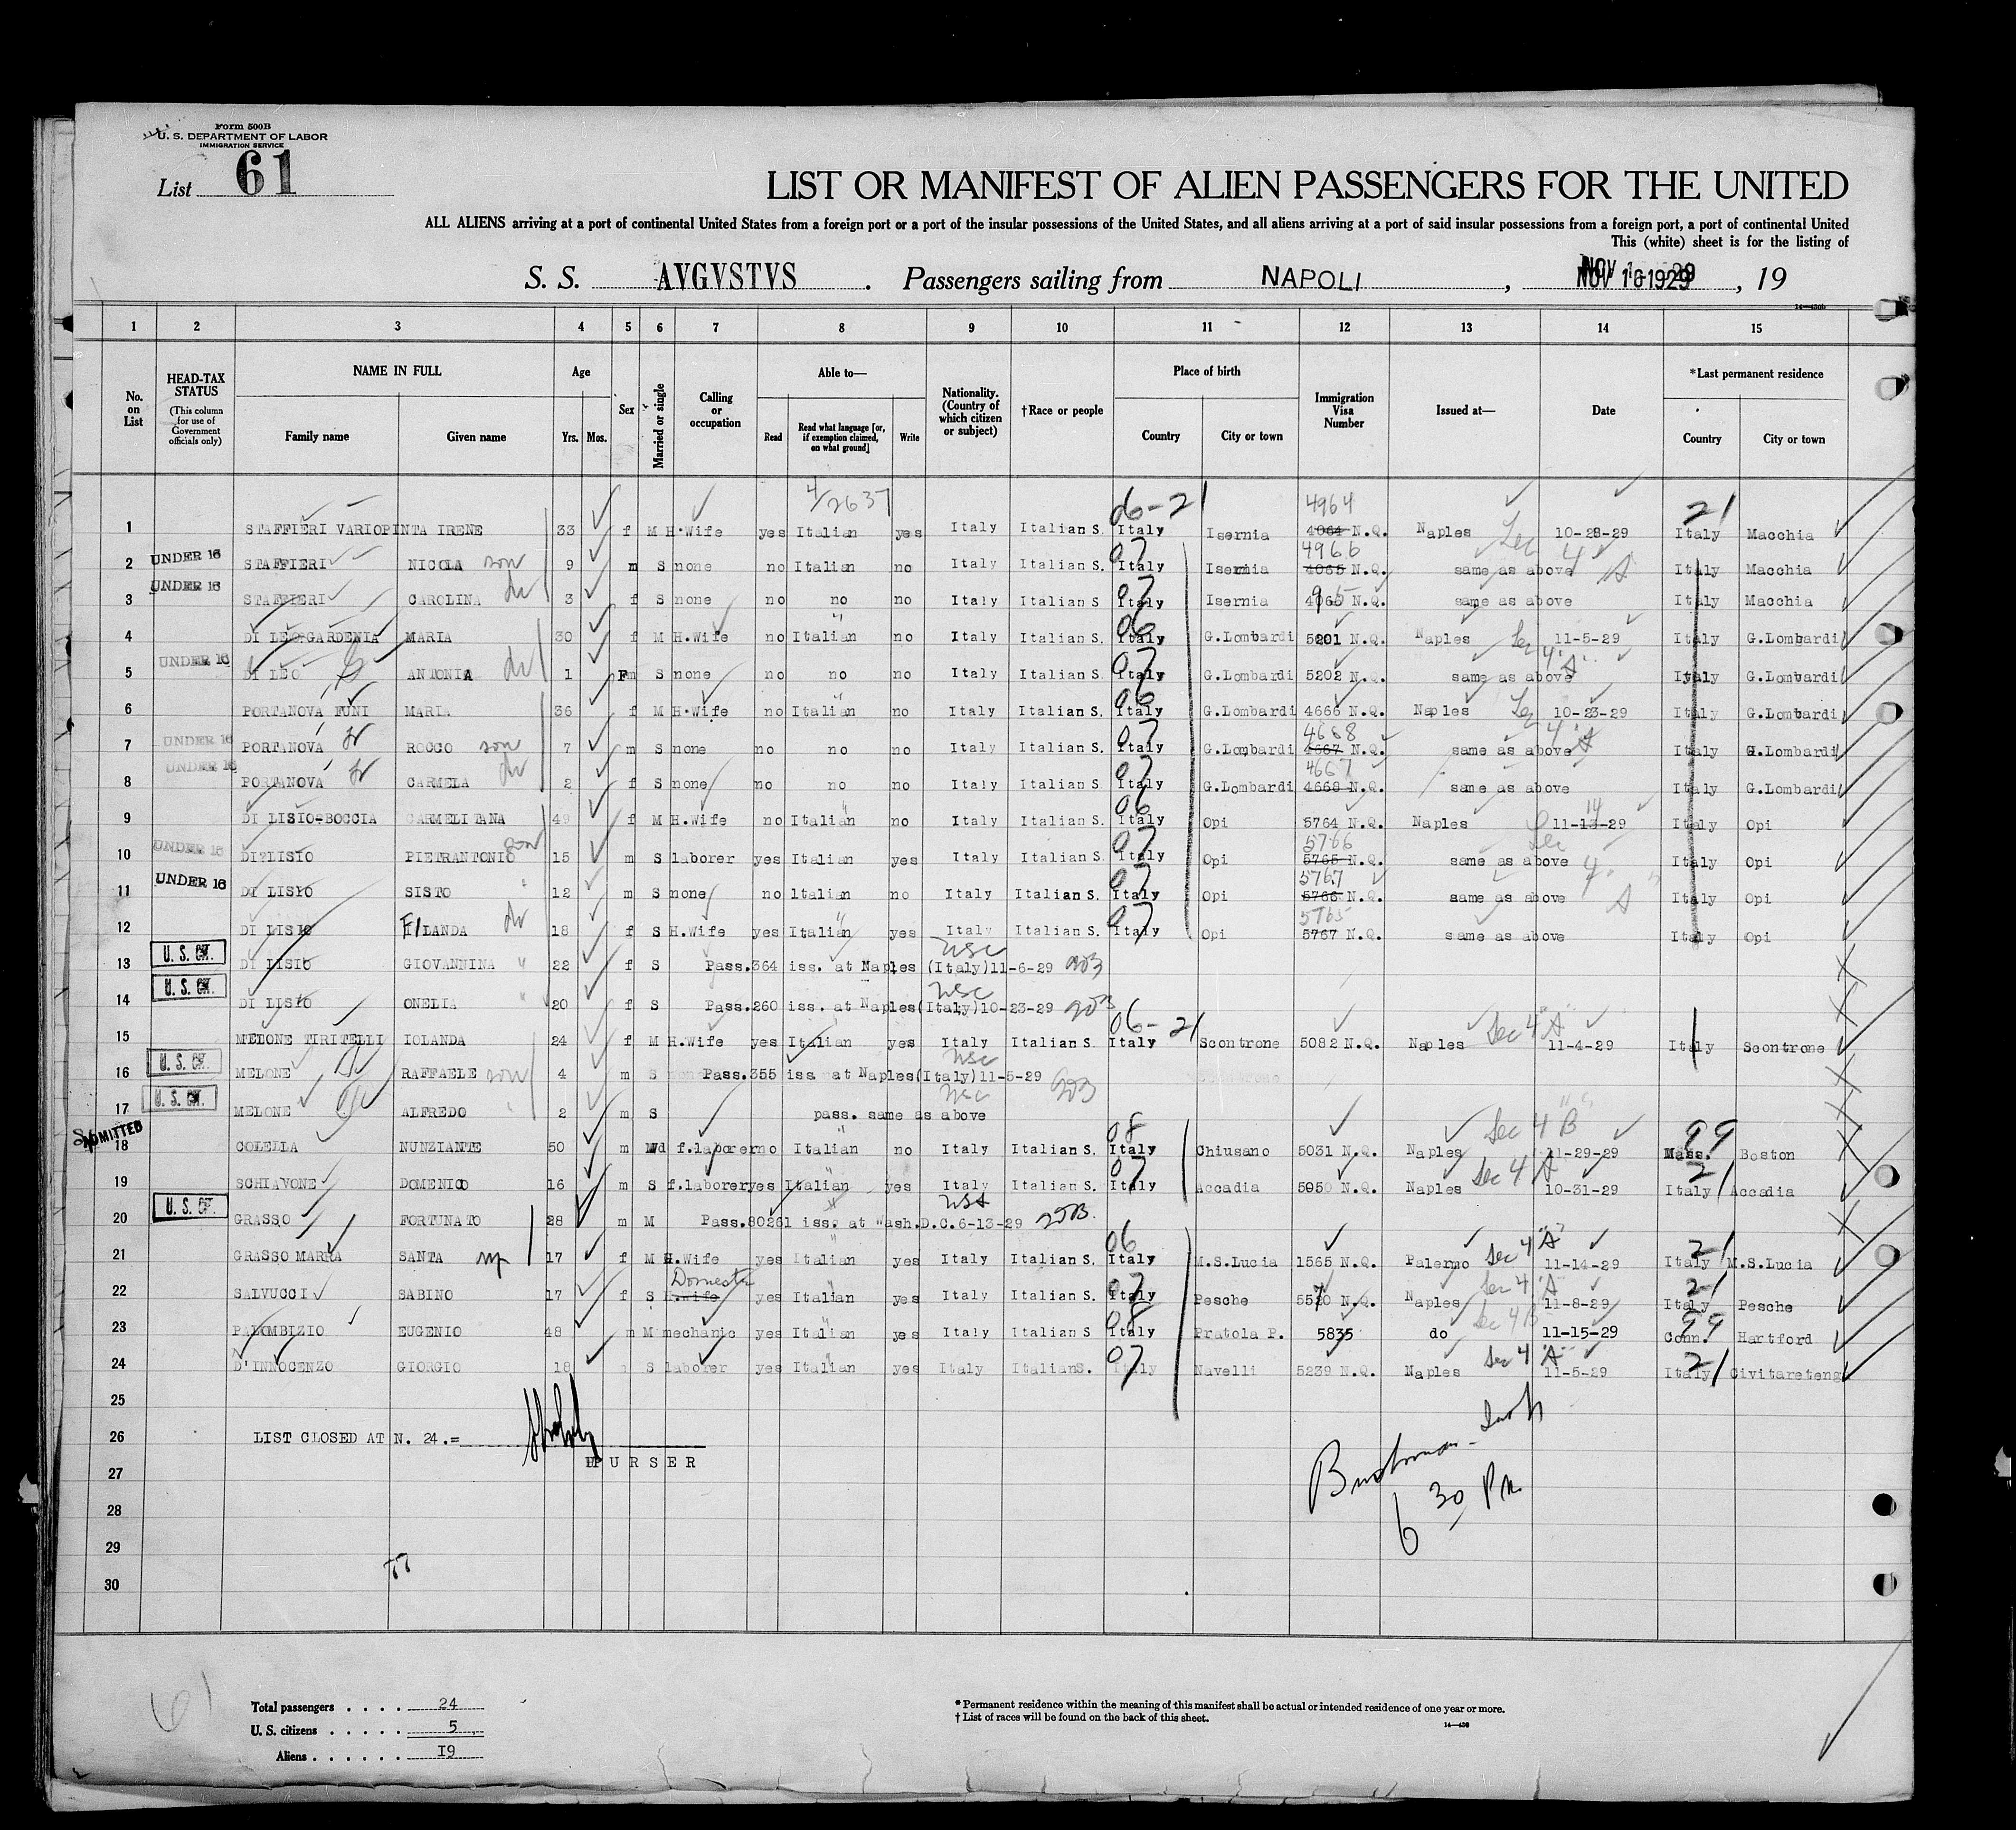 Form 500B
U. S. DEPARTMENT OF LABOR
IMMIGRATION SERVICE
List 61
LIST OR MANIFEST OF ALIEN PASSENGERS FOR THE UNITED
ALL ALIENS arriving at a port of continental United States from a foreign port or a port of the insular possessions of the United States, and all aliens arriving at a port of said insular possessions from a foreign port, a port of continental United
This (white) sheet is for the listing of
S. S. AVGVSTVS. Passengers sailing from NAPOLI, NOV 16 1929, 19
14—430b
1 2 3 4 5 6 7 8 9 10 11 12 13 14 15
No. on List
HEAD-TAX STATUS (This column for use of Government officials only)
NAME IN FULL
Family name Given name
Age Yrs. Mos.
Sex
Married or single
Calling or occupation
Able to—
Read Read what language [or, if exemption claimed, on what ground] Write
Nationality. (Country of which citizen or subject)
†Race or people
Place of birth
Country City or town
Immigration Visa Number
Issued at—
Date
*Last permanent residence
Country City or town
4/2637 06-21 4964 21
1 STAFFIERI VARIOPINTA IRENE 33 f M H.Wife yes Italian yes Italy Italian S. Italy Isernia 4064 N.Q. Naples 10-28-29 Italy Macchia
UNDER 16 07 4966 Sec 4 A
2 STAFFIERI NICOLA son 9 m S none no Italian no Italy Italian S. Italy Isernia 4065 N.Q. same as above Italy Macchia
UNDER 16 07
3 STAFFIERI CAROLINA dr 3 f S none no no no Italy Italian S Italy Isernia 4965 N.Q. same as above Italy Macchia
06
4 DI LEO-GARDENIA MARIA 30 f M H.Wife no Italian no Italy Italian S. Italy G.Lombardi 5201 N.Q. Naples Sec 4 A 11-5-29 Italy G.Lombardi
UNDER 16 07
5 DI LEO ANTONIA dr 1 F S none no no no Italy Italian S. Italy G.Lombardi 5202 N.Q. same as above Italy G.Lombardi
06
6 PORTANOVA FUNI MARIA 36 f M H.Wife no Italian no Italy Italian S. Italy G.Lombardi 4666 N.Q. Naples Sec 4 A 10-23-29 Italy G.Lombardi
UNDER 16 07 4668
7 PORTANOVA ROCCO son 7 m S none no no no Italy Italian S. Italy G.Lombardi 4667 N.Q. same as above Italy G.Lombardi
UNDER 16 07 4667
8 PORTANOVA CARMELA dr 2 f S none no no no Italy Italian S. Italy G.Lombardi 4668 N.Q. same as above Italy G.Lombardi
06 14
9 DI LISIO-BOCCIA CARMELITANA 49 f M H.Wife no Italian no Italy Italian S. Italy Opi 5764 N.Q. Naples 11-13-29 Italy Opi
UNDER 16 son 07 5766 Sec 4 A
10 DI LISIO PIETRANTONIO 15 m S laborer yes Italian yes Italy Italian S. Italy Opi 5765 N.Q. same as above Italy Opi
UNDER 16 07 5767
11 DI LISIO SISTO " 12 m S none no Italian no Italy Italian S. Italy Opi 5766 N.Q. same as above Italy Opi
07 5765
12 DI LISIO ILANDA dr 18 f S H.Wife yes Italian yes Italy Italian S. Italy Opi 5767 N.Q. same as above Italy Opi
U. S. CIT. USC
13 DI LISIO GIOVANNINA " 22 f S Pass.364 iss. at Naples (Italy)11-6-29
U. S. CIT. USC
14 DI LISIO ONELIA " 20 f S Pass.260 iss. at Naples(Italy)10-23-29
06-21 Sec 4 A
15 MELONE TIRITELLI IOLANDA 24 f M H.Wife yes Italian yes Italy Italian S. Italy Scontrone 5082 N.Q. Naples 11-4-29 Italy Scontrone
U. S. CIT. USC
16 MELONE RAFFAELE son 4 m S Pass.355 iss at Naples(Italy)11-5-29
U. S. CIT. USC
17 MELONE ALFREDO " 2 m S pass. same as above
ADMITTED 08 Sec 4 B 99
18 COLELLA NUNZIANTE 50 m Wd f.laborer no Italian no Italy Italian S. Italy Chiusano 5031 N.Q. Naples 11-29-29 Mass. Boston
07 Sec 4 A 21
19 SCHIAVONE DOMENICO 16 m S f.laborer yes Italian yes Italy Italian S. Italy Accadia 5050 N.Q. Naples 10-31-29 Italy Accadia
U. S. CIT. USA
20 GRASSO FORTUNATO 28 m M Pass.80261 iss. at Wash.D.C.6-13-29
06 Sec 4 "A" 21
21 GRASSO MARRA SANTA 17 f M H.Wife yes Italian yes Italy Italian S. Italy M.S.Lucia 1565 N.Q. Palermo 11-14-29 Italy M.S.Lucia
Domestic 07 Sec 4 A 21
22 SALVUCCI SABINO 17 f S H.Wife yes Italian yes Italy Italian S. Italy Pesche 5570 N.Q. Naples 11-8-29 Italy Pesche
08 Sec 4 B 99
23 PALOMBIZIO EUGENIO 48 m M mechanic yes Italian yes Italy Italian S Italy Pratola P. 5835 do 11-15-29 Conn. Hartford
07 Sec 4 "A" 21
24 D'INNOCENZO GIORGIO 18 S laborer yes Italian yes Italy ItalianS. Italy Navelli 5239 N.Q. Naples 11-5-29 Italy Civitareteng
25
26 LIST CLOSED AT N. 24.=
PURSER
27
28
29
30
6 30 PM
61
Total passengers . . . . 24
U. S. citizens . . . . . 5
Aliens . . . . . . 19
* Permanent residence within the meaning of this manifest shall be actual or intended residence of one year or more.
† List of races will be found on the back of this sheet.
14—430